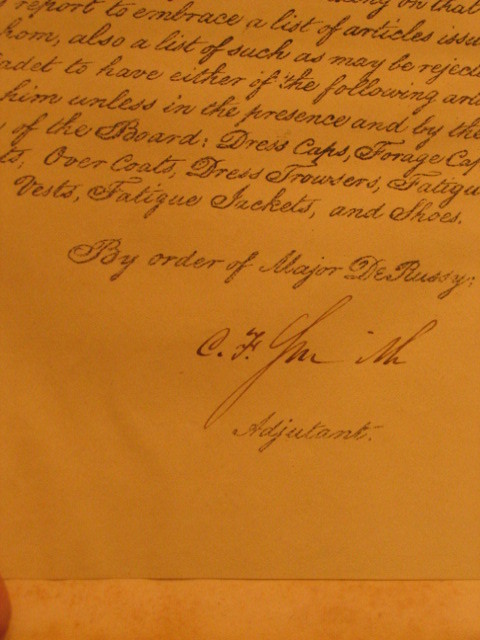 on that
report to embrace a list of articles issu
hom, also a list of such as may be rejecte
adet to have either if the following arti
him unless in the presence and by the
of the Board: Dress Caps, Forage Cap
ts, Over Coats, Dress Trowsers, Fatigu
Vests, Fatigue Jackets, and Shoes.
By order of Major DeRussy:
C. F. Smith
Adjutant.